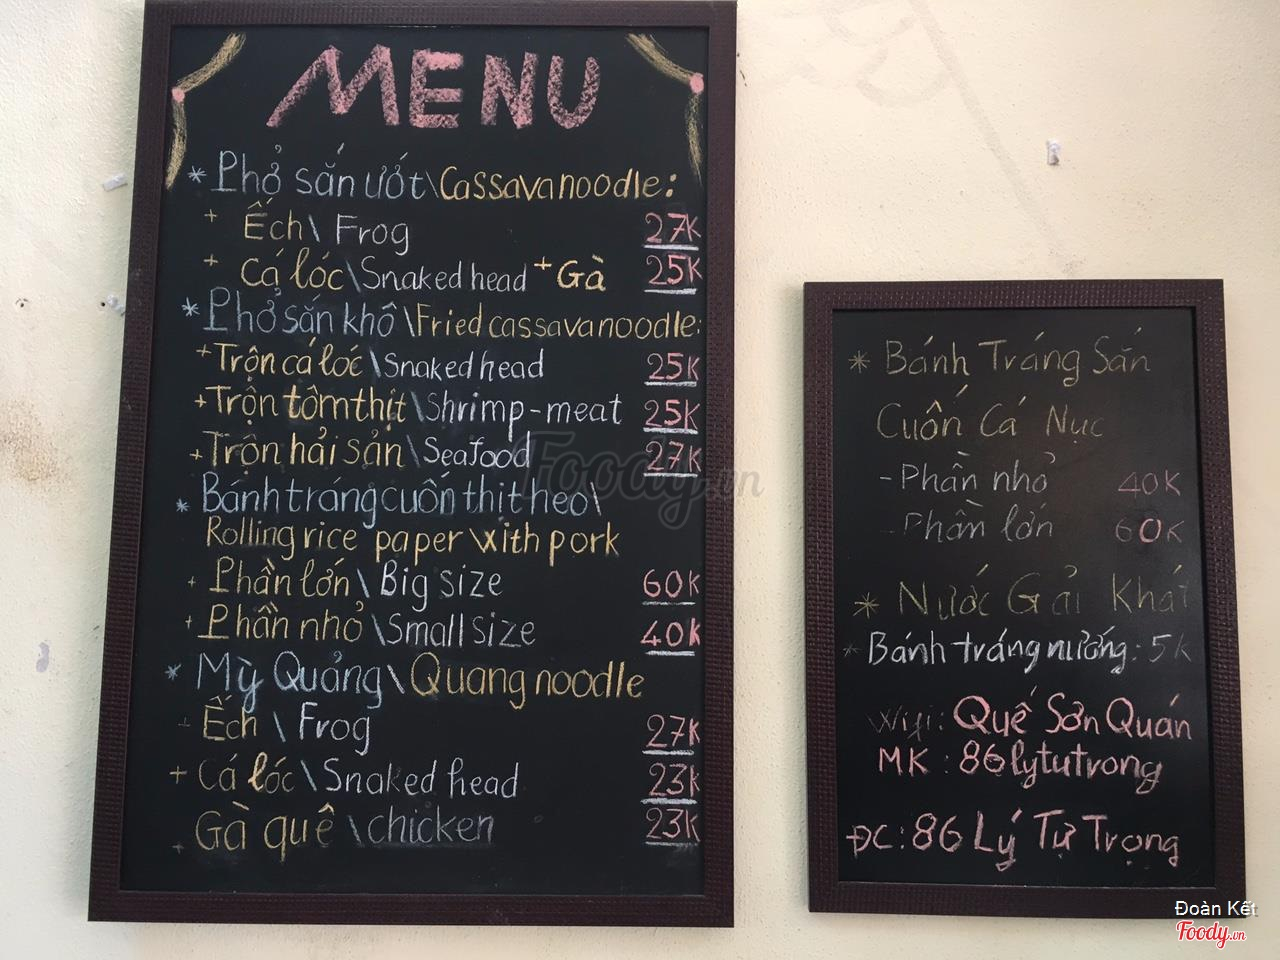 MENU
* Phở sắn ướt\Cassava noodle:
+ Ếch\ Frog 27K
+ Cá lóc\Snaked head + Gà 25K
* Phở sắn khô\Fried cassava noodle:
+ Trộn cá lóc\Snaked head 25K
+ Trộn tôm thịt\Shrimp-meat 25K
+ Trộn hải sản\Seafood 27K
* Bánh tráng cuốn thịt heo\
Rolling rice paper with pork
+ Phần lớn\Big size 60K
+ Phần nhỏ\Small size 40K
* Mỳ Quảng\Quang noodle
+ Ếch \ Frog 27K
+ Cá lóc\Snaked head 23K
+ Gà quê\chicken 23K
* Bánh Tráng Sắn
Cuốn Cá Nục
- Phần nhỏ 40K
- Phần lớn 60K
* Nước Gải Khát
* Bánh tráng nướng: 5k
Wifi: Quế Sơn Quán
MK : 86lytutrong
ĐC: 86 Lý Tự Trọng
Foody.vn
Đoàn Kết
Foody.vn